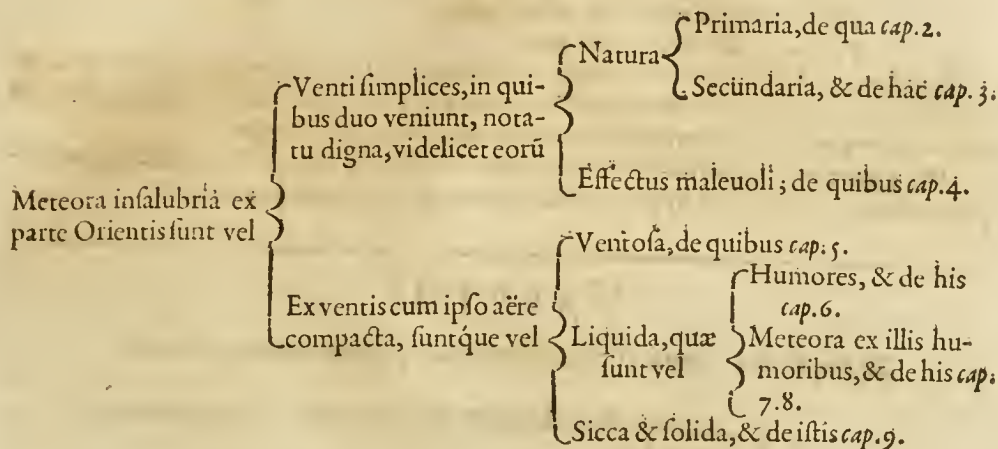 Meteora inſalubria ex
parte Orientis ſunt vel
Venti ſimplices, in qui-
bus duo veniunt, nota-
tu digna, videlicet eorũ
Natura
Primaria, de qua cap. 2.
Secundaria, & de hac cap. 3.
Effectus maleuoli; de quibus cap. 4.
Ex ventis cum ipſo aëre
compacta, ſuntq́ue vel
Ventoſa, de quibus cap. 5.
Liquida, quæ
ſunt vel
Humores, & de his
cap. 6.
Meteora ex illis hu-
moribus, & de his cap.
7.8.
Sicca & ſolida, & de iſtis cap. 9.